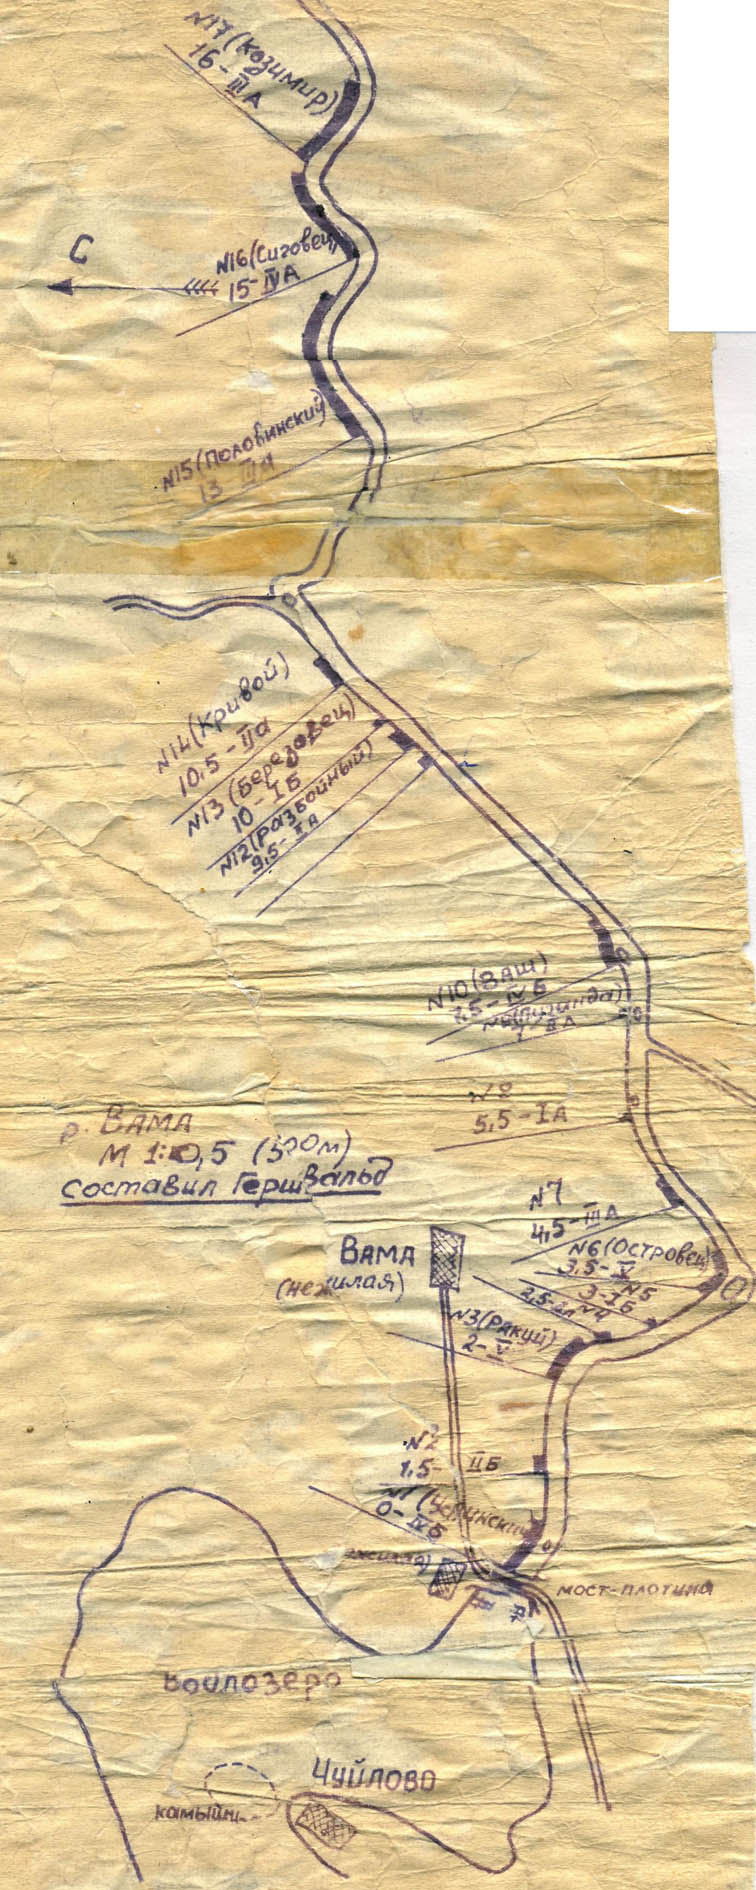 N17 (Козимир)
16-IIIА
С
N16 (Сиговец)
15-IVА
N15 (Половинский)
13-
N14 (Кривой)
10,5-IIа
N13 (Березовец)
10-IБ
N12 (Разбойный)
9,5-IIА
N10 (ВАШ)
7,5-IVБ
IIА
N8
5,5-IА
р. ВАМА
М 1:0,5 (500м)
Составил Гершвальд
N7
4,5-IIIА
N6 (Островец)
3,5-V
N5
3-IБ
N4
ВАМА
(нежилая)
N3 (Ракуй)
2-V
N2
1,5- IIБ
N1
0-IVБ
мост-плотина
Водлозеро
Чуйлово
камыши